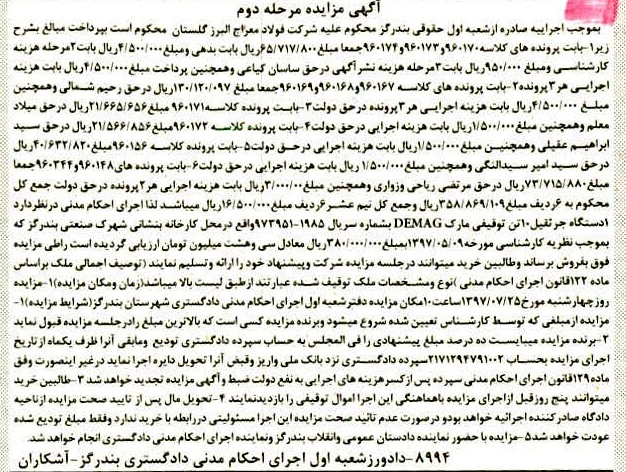 آگهی مزایده مرحله دوم
بموجب اجراییه صادره ازشعبه اول حقوقی بندرگز محکوم علیه شرکت فولاد معراج البرز گلستان محکوم است بپرداخت مبالغ بشرح
زیر۱-بابت پرونده های کلاسه ۹۶۰۱۷۰و۹۶۰۱۷۳و۹۶۰۱۷۴جمعا مبلغ۶۵/۷۱۷/۸۰۰ریال بابت بدهی ومبلغ۴/۵۰۰/۰۰۰ریال بابت۲مرحله هزینه
کارشناسی ومبلغ ۹۵۰/۰۰۰ریال بابت۳مرحله هزینه نشرآگهی درحق ساسان کیاعی وهمچنین پرداخت مبلغ۴/۵۰۰/۰۰۰ریال بابت هزینه
اجرایی هر۳پرونده۲-بابت پرونده های کلاسه ۹۶۰۱۶۷و۹۶۰۱۶۸و۹۶۰۱۶۹جمعا مبلغ ۱۳۰/۱۲۰/۰۹۷ریال درحق رحیم شمالی وهمچنین
مبلغ ۴/۵۰۰/۰۰۰ریال بابت هزینه اجرایی هر۳پرونده درحق دولت۳-بابت پرونده کلاسه ۹۶۰۱۷۱مبلغ۲۱/۶۶۵/۶۵۶ریال درحق میلاد
معلم وهمچنین مبلغ۱/۵۰۰/۰۰۰ریال بابت هزینه اجرایی درحق دولت۴-بابت پرونده کلاسه ۹۶۰۱۷۲مبلغ ۲۱/۵۶۶/۸۵۶ریال درحق سید
ابراهیم عقیلی وهمچنین مبلغ۱/۵۰۰/۰۰۰ریال بابت هزینه اجرایی درحق دولت۵-بابت پرونده کلاسه ۹۶۰۱۵۶مبلغ ۴۰/۶۳۲/۸۲۰ریال
درحق سید امیر سیدالنگی وهمچنین مبلغ۱/۵۰۰/۰۰۰ ریال بابت هزینه اجرایی درحق دولت۶-بابت پرونده های۹۶۰۱۴۸و۹۶۰۳۴۴جمعا
مبلغ۷۳/۷۱۵/۸۸۰ریال درحق مرتضی ریاحی وزواری وهمچنین مبلغ۳/۰۰۰/۰۰۰ریال بابت هزینه اجرایی هر۲پرونده درحق دولت جمع کل
محکوم به ۶ردیف مبلغ۳۵۸/۸۶۹/۱۰۹ریال وجمع کل نیم عشر۶ردیف مبلغ۱۶/۵۰۰/۰۰۰ریال میباشد لذا اجرای احکام مدنی درنظردارد
۱دستگاه جرثقیل۱۰تن توقیفی مارک DEMAG بشماره سریال ۱۹۸۵-۹۷۳۹۵۱واقع درمحل کارخانه بنشانی شهرک صنعتی بندرگز که
بموجب نظریه کارشناسی مورخه۱۳۹۷/۰۵/۰۹بمبلغ۳۸۰/۰۰۰/۰۰۰ریال معادل سی وهشت میلیون تومان ارزیابی گردیده است راطی مزایده
فوق بفروش برساند وطالبین خرید میتوانند درجلسه مزایده شرکت وپیشنهاد خود را ارائه وتسلیم نمایند (توصیف اجمالی ملک براساس
ماده ۱۲۲قانون اجرای احکام مدنی )نوع ومشخصات ملک توقیف شده عبارتند ازطبق لیست بالا میباشد(زمان ومکان مزایده)۱-مزایده
روزچهارشنبه مورخ۱۳۹۷/۰۷/۲۵ساعت۱۰مکان مزایده دفترشعبه اول اجرای احکام مدنی دادگستری شهرستان بندرگز(شرایط مزایده)۱-
مزایده ازمبلغی که توسط کارشناس تعیین شده شروع میشود وبرنده مزایده کسی است که بالاترین مبلغ رادرجلسه مزایده قبول نماید
۲-برنده مزایده میبایست ده درصد مبلغ پیشنهادی را فی المجلس به حساب سپرده دادگستری تودیع ومابقی آنرا ظرف یکماه ازتاریخ
اجرای مزایده بحساب ۲۱۷۱۲۹۴۷۹۱۰۰۲سپرده دادگستری نزد بانک ملی واریز وقبض آنرا تحویل دایره اجرا نماید درغیر اینصورت وفق
ماده۱۲۹قانون اجرای احکام مدنی سپرده پس ازکسرهزینه های اجرایی به نفع دولت ضبط وآگهی مزایده تجدید خواهد شد ۳-طالبین خرید
میتوانند پنج روزقبل ازاجرای مزایده باهماهنگی این اجرا اموال توقیفی را بازدیدنمایند ۴-تحویل مال پس از تایید صحت مزایده ازناحیه
دادگاه صادرکننده اجرائیه خواهد بودو درصورت عدم تائید صحت مزایده این اجرا مسئولیتی دررابطه با خرید ندارد وفقط مبلغ تودیع شده
عودت خواهد شد۵-مزایده با حضور نماینده دادستان عمومی وانقلاب بندرگز ونماینده اجرای احکام مدنی دادگستری انجام خواهد شد.
۸۹۹۴-دادورزشعبه اول اجرای احکام مدنی دادگستری بندرگز-آشکاران